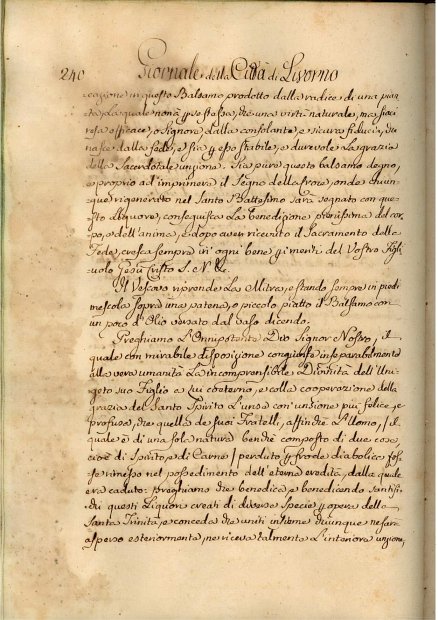 240 Giornale della Città di Livorno
cazione in questo Balsamo prodotto dalla radice di una pian
ta, la quale non à per se stessa, che una virtù naturale, ma fiaci
resa efficace, o Signore dalla consolante, e sicura fiducia, che
nasce dalla fede, e sia per essa stabile, e durevole la grazia
della Sacerdotale unzione. Sia pure questo balsamo degno,
e proprio ad imprimere il Segno della Croce, onde chiun-
que rigenerato nel Santo Battesimo sarà segnato con que-
sto Liquore, conseguisca la benedizione pienissima del cor-
po, e dell'anima, e dopo aver ricevuto il Sacramento della
Fede, cresca sempre in ogni bene per i meriti del Vostro Figli-
uolo Gesù Cristo S. e N. &c.
Il Vescovo riprende la Mitra, e stando sempre in piedi
mescola sopra una patena, o piccolo piatto il Balsamo con
un poco d'Olio versato dal vaso dicendo.
Preghiamo L'Onnipotente Dio Signor Nostro, il
quale con mirabile disposizione congiunse inseparabilmente
alla vera umanità la incomprensibile Divinità dell'Uni-
geto suo Figlio a lui coeterno, e colla cooperazione della
grazia del Santo Spirito l'unse con un'unzione più felice, e
profusa, che quella de suoi Fratelli, affinchè l'Uomo, (il
quale è di una sola natura benchè composto di due cose,
cioè di Spirito, e di Carne) perduto per frode diabolica fos-
se rimesso nel possedimento dell'eterna eredità, dalla quale
era caduto: preghiamo che benedica, e benedicendo santifi-
chi questi Liquori creati di diversa specie per opera della
Santa Trinità, e conceda che uniti insieme chiunque ne sarà
asperso esteriormente, ne riceva talmente l'interiore unzione,